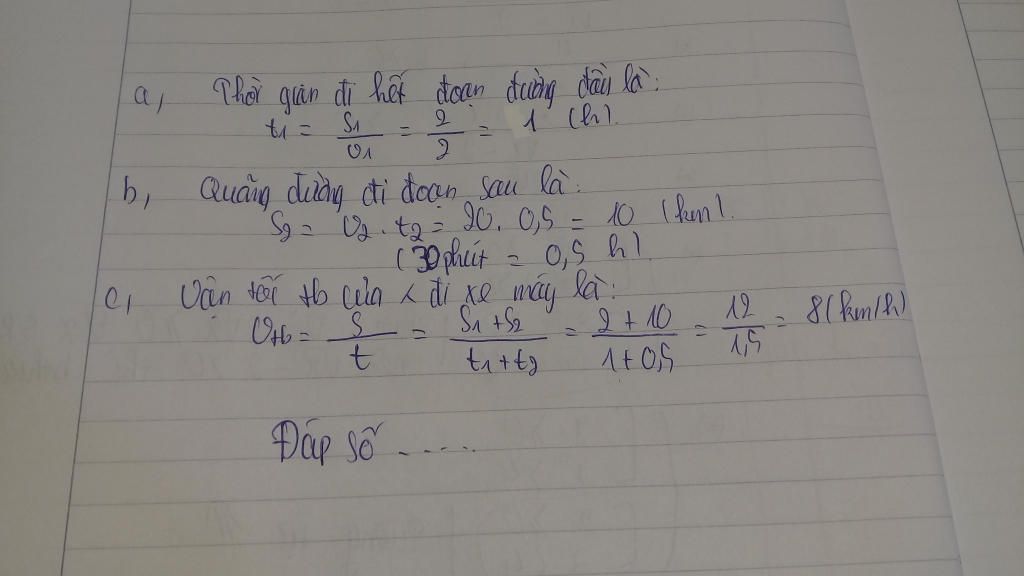 a, Thời gian đi hết đoạn đường đầu là:
t1 = S1/v1 = 2/2 = 1 (h).
b, Quãng đường đi đoạn sau là:
S2 = v2 . t2 = 20. 0,5 = 10 (km).
(30 phút = 0,5 h).
c, Vận tốc tb của x đi xe máy là:
vtb = S/t = S1+S2/t1+t2 = 2+10/1+0,5 = 12/1,5 = 8 (km/h)
Đáp số .....